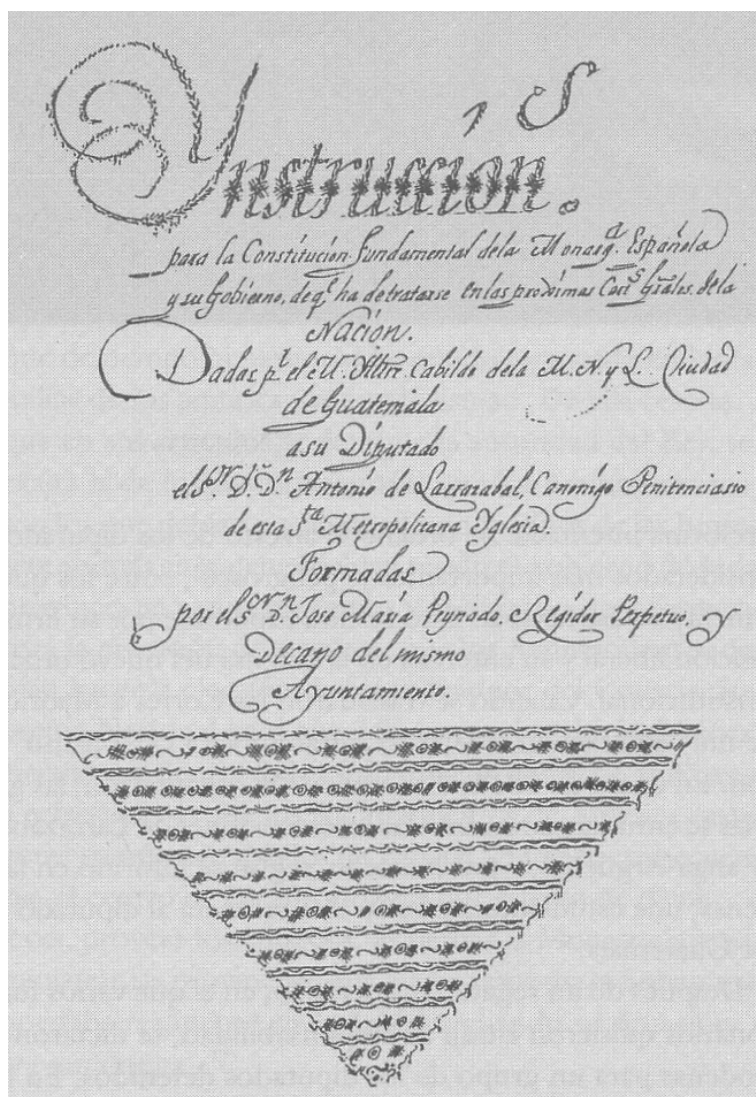 Ynstrucción.
para la Constitución fundamental dela Monarq.a Española
y su Gobierno, de q.e ha detratarse en las proximas Cort.s Grãles. dela
Nación.
Dadas p.r el M. Yltre. Cabildo dela M. N. y L. Ciudad
de Guatemala
asu Diputado
el S.or D.r D.n Antonio de Larrazabal, Canonigo Penitenciario
de esta S.ta Metropolitana Yglesia.
Formadas
por el S.or D.n Jose María Peynado, Regidor Perpetuo, y
Decano del mismo
Ayuntamiento.